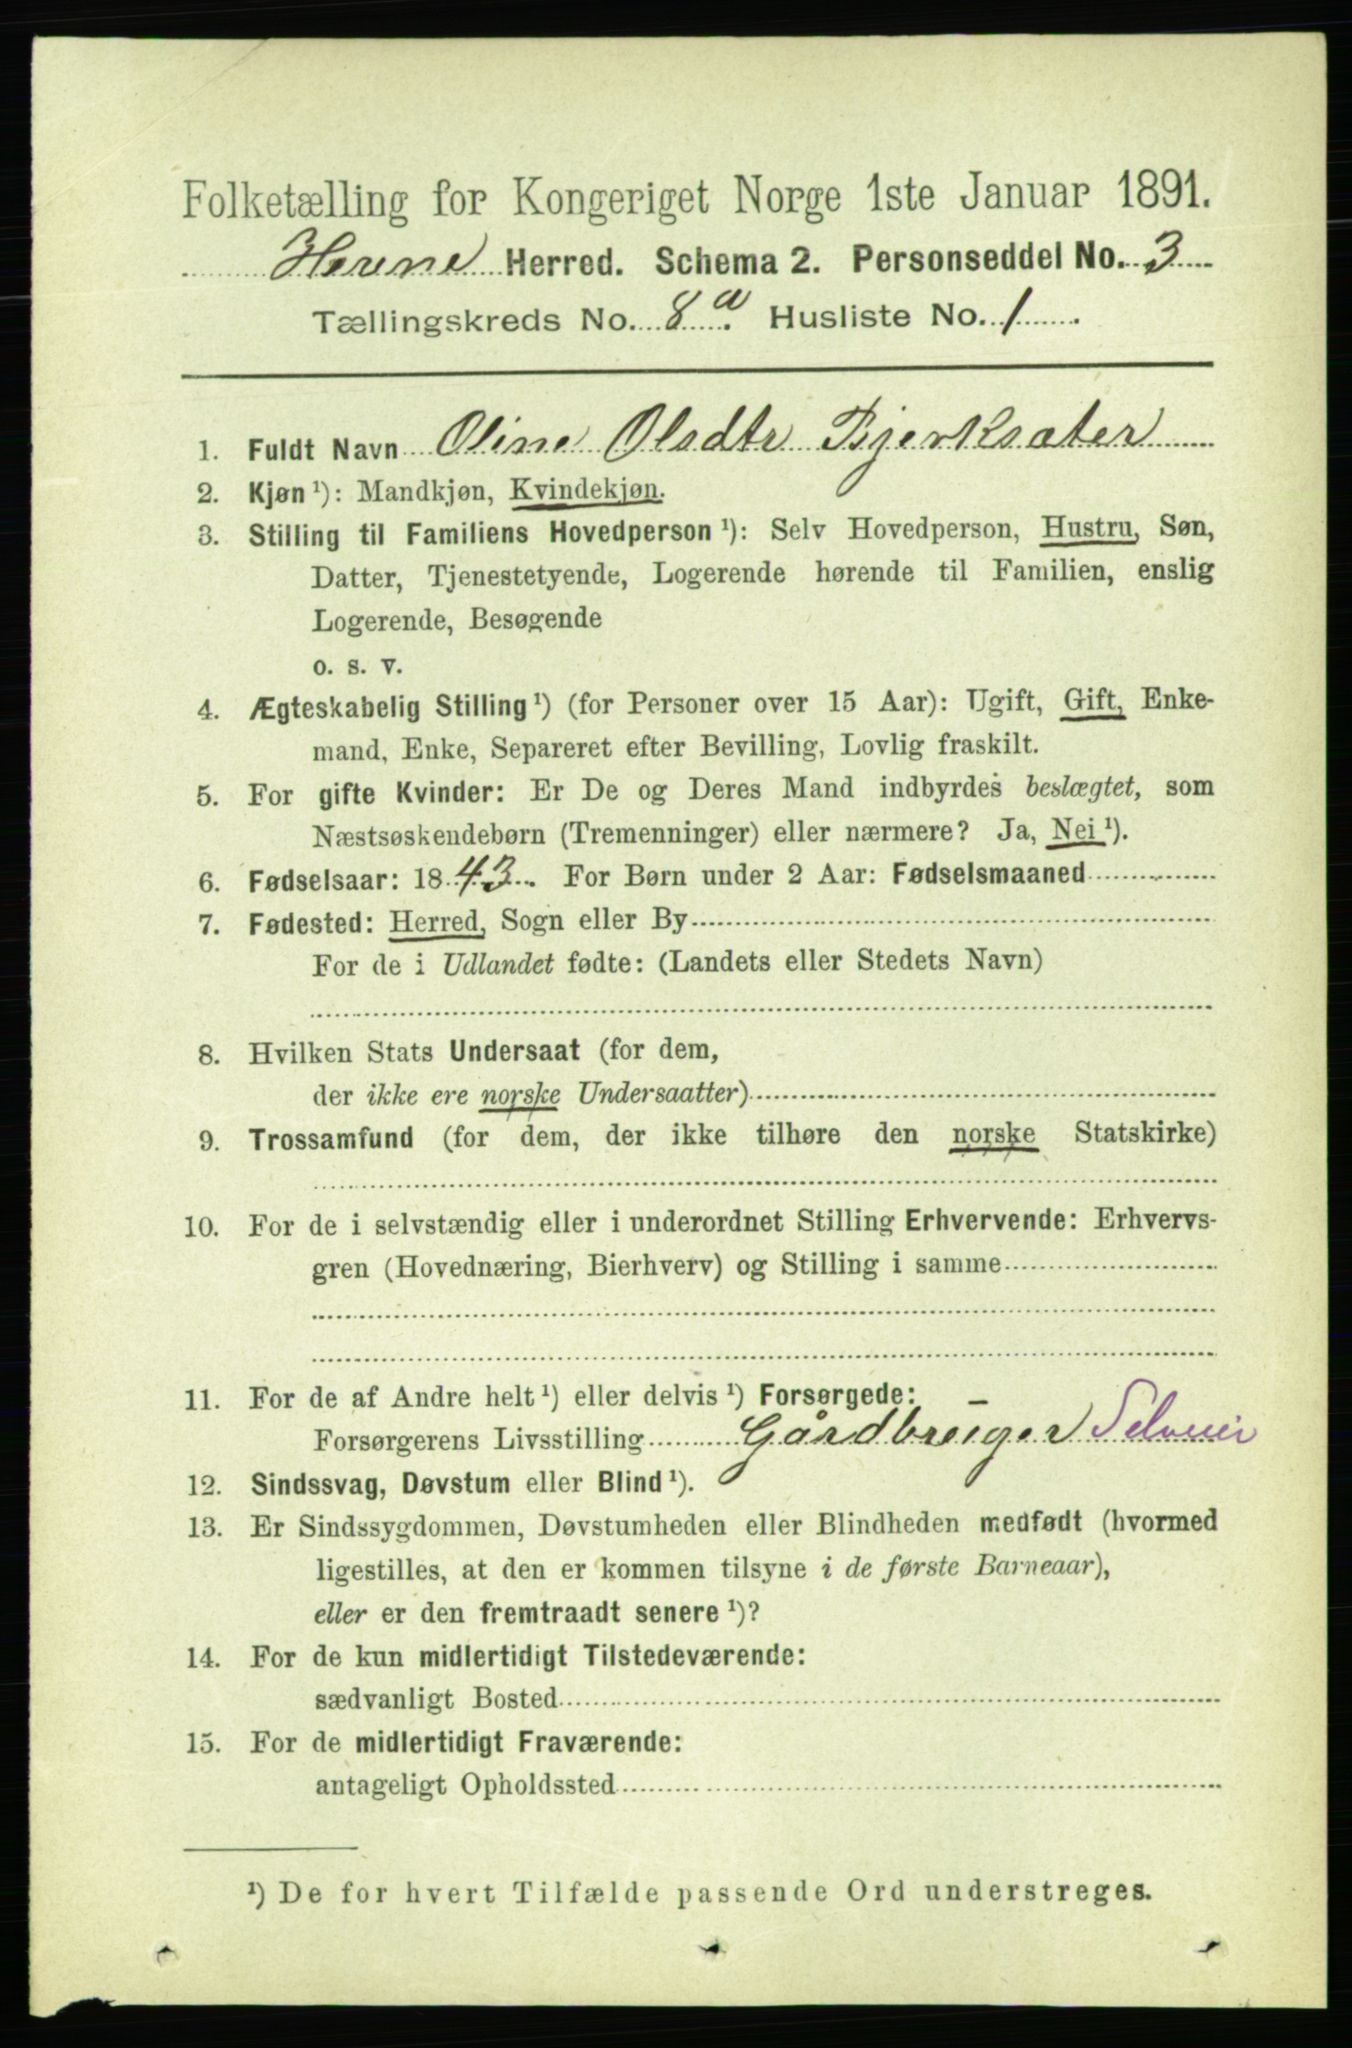 Folketælling for Kongeriget Norge 1ste Januar 1891.
Hevne Herred. Schema 2. Personseddel No. 3
Tællingskreds No. 8 a. Husliste No. 1
1. Fuldt Navn Oline Olsdtr Bjerksæter
2. Kjøn ¹): Mandkjøn, Kvindekjøn.
3. Stilling til Familiens Hovedperson ¹): Selv Hovedperson, Hustru, Søn,
Datter, Tjenestetyende, Logerende hørende til Familien, enslig
Logerende, Besøgende
o. s. v.
4. Ægteskabelig Stilling ¹) (for Personer over 15 Aar): Ugift, Gift, Enke-
mand, Enke, Separeret efter Bevilling, Lovlig fraskilt.
5. For gifte Kvinder: Er De og Deres Mand indbyrdes beslægtet, som
Næstsøskendebørn (Tremenninger) eller nærmere? Ja, Nei ¹).
6. Fødselsaar: 1843. For Børn under 2 Aar: Fødselsmaaned
7. Fødested: Herred, Sogn eller By
For de i Udlandet fødte: (Landets eller Stedets Navn)
8. Hvilken Stats Undersaat (for dem,
der ikke ere norske Undersaatter)
9. Trossamfund (for dem, der ikke tilhøre den norske Statskirke)
10. For de i selvstændig eller i underordnet Stilling Erhvervende: Erhvervs-
gren (Hovednæring, Bierhverv) og Stilling i samme
11. For de af Andre helt ¹) eller delvis ¹) Forsørgede:
Forsørgerens Livsstilling Gårdbruger Selveier
12. Sindssvag, Døvstum eller Blind ¹).
13. Er Sindssygdommen, Døvstumheden eller Blindheden medfødt (hvormed
ligestilles, at den er kommen tilsyne i de første Barneaar),
eller er den fremtraadt senere ¹)?
14. For de kun midlertidigt Tilstedeværende:
sædvanligt Bosted
15. For de midlertidigt Fraværende:
antageligt Opholdssted
¹) De for hvert Tilfælde passende Ord understreges.